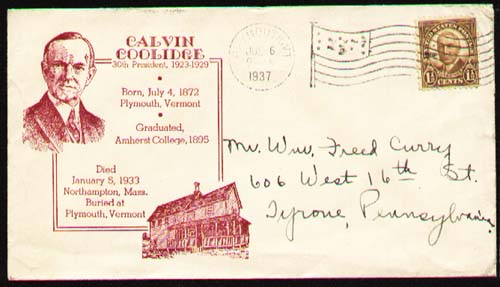 CALVIN
COOLIDGE
30th President, 1923-1929
Born, July 4, 1872
Plymouth, Vermont
Graduated,
Amherst College, 1895
Died
January 5, 1933
Northampton, Mass.
Buried at
Plymouth, Vermont
6
1937
1½ CENTS 1½
Mr. Wm. Fred Curry
606 West 16th St.
Tyrone, Pennsylvania